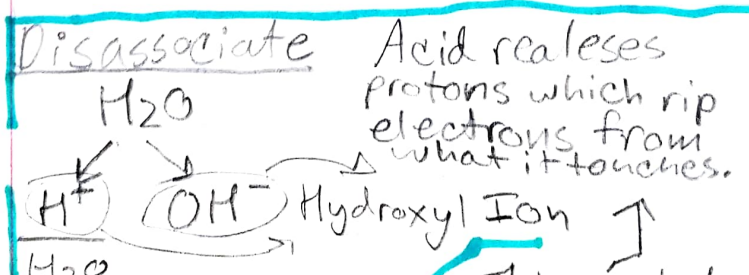 Disassociate
H2O
H+ OH- Hydroxyl Ion
H2O
Acid realeses
protons which rip
electrons from
what it touches.